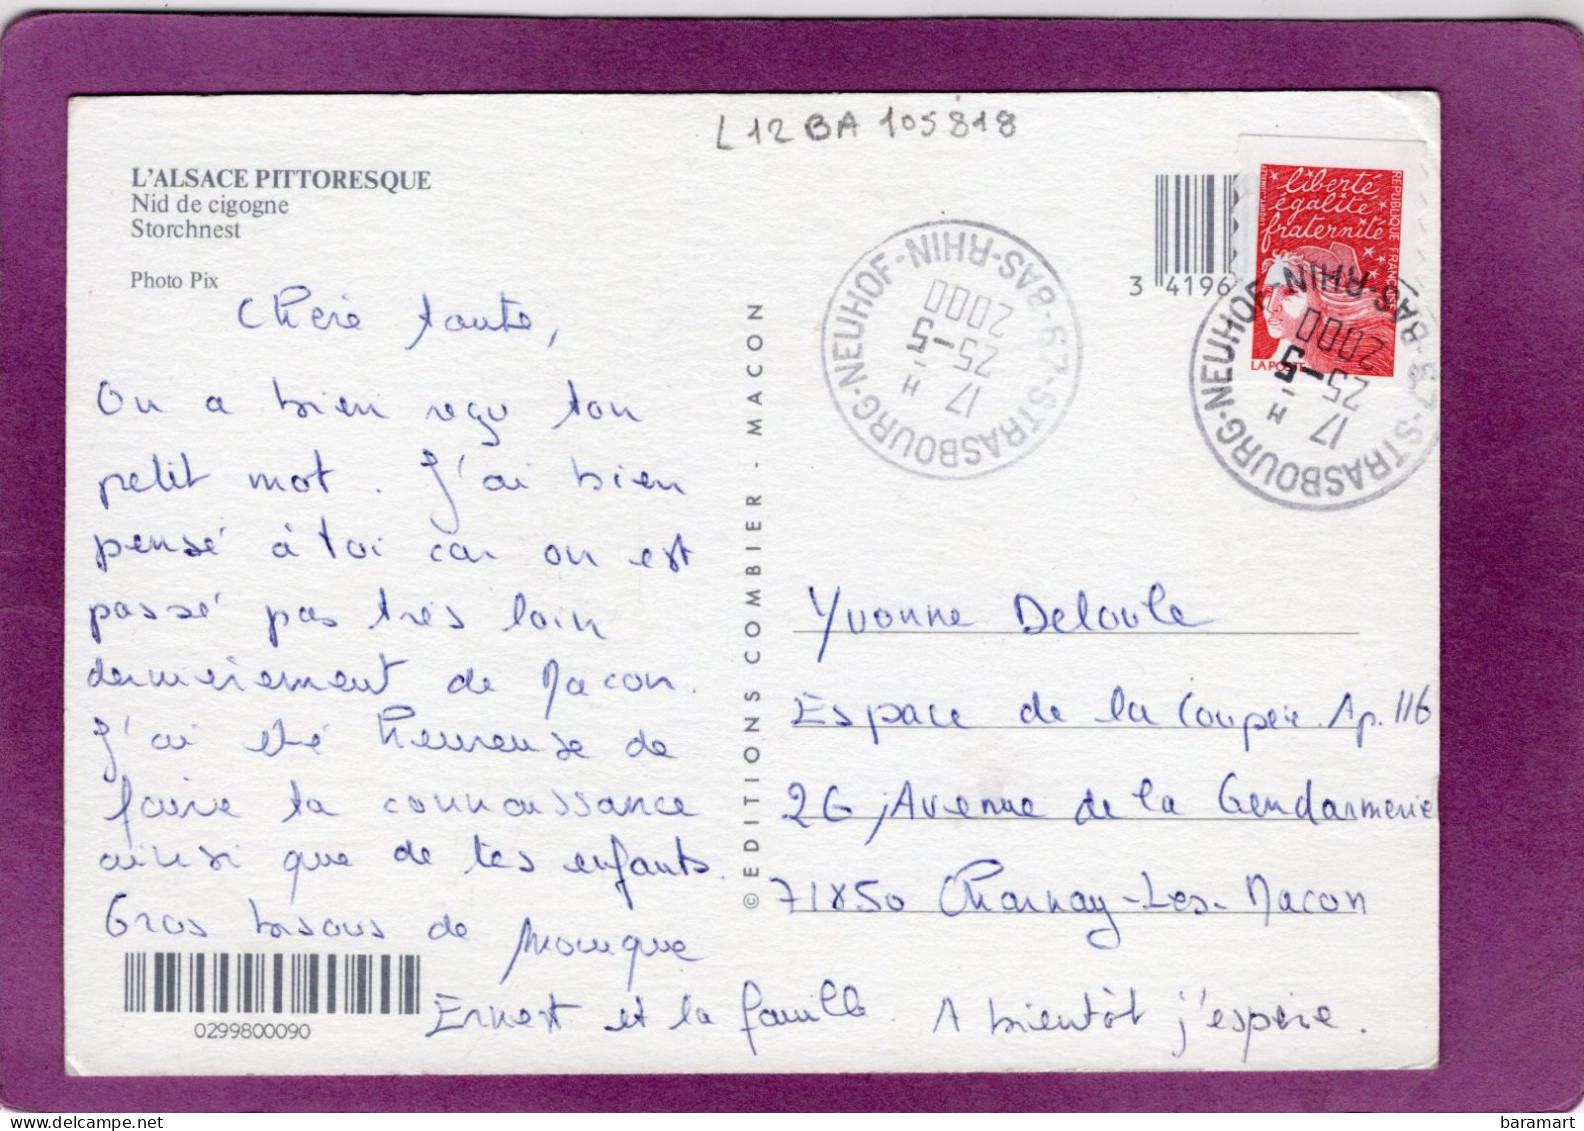 L12BA 105818
L'ALSACE PITTORESQUE
Nid de cigogne
Storchnest
Photo Pix
Chère tante,
On a bien reçu ton
petit mot. J'ai bien
pensé à toi car on est
passé pas très loin
dernièrement de Macon.
J'ai été heureuse de
faire ta connaissance
ainsi que de tes enfants.
Gros bisous de Monique
Ernest et la famille. A bientôt j'espère.
0299800090
© EDITIONS COMBIER - MACON
67-STRASBOURG-NEUHOF-BAS-RHIN
17 H
25-5
2000
3 4196
liberté
égalité
fraternité
REPUBLIQUE FRANÇAISE
LA POSTE
67-STRASBOURG-NEUHOF-BAS-RHIN
17 H
25-5
2000
Yvonne Deloule
Espace de la Coupée Ap. 116
26, Avenue de la Gendarmerie
71850 Charnay-Les-Macon
baramart